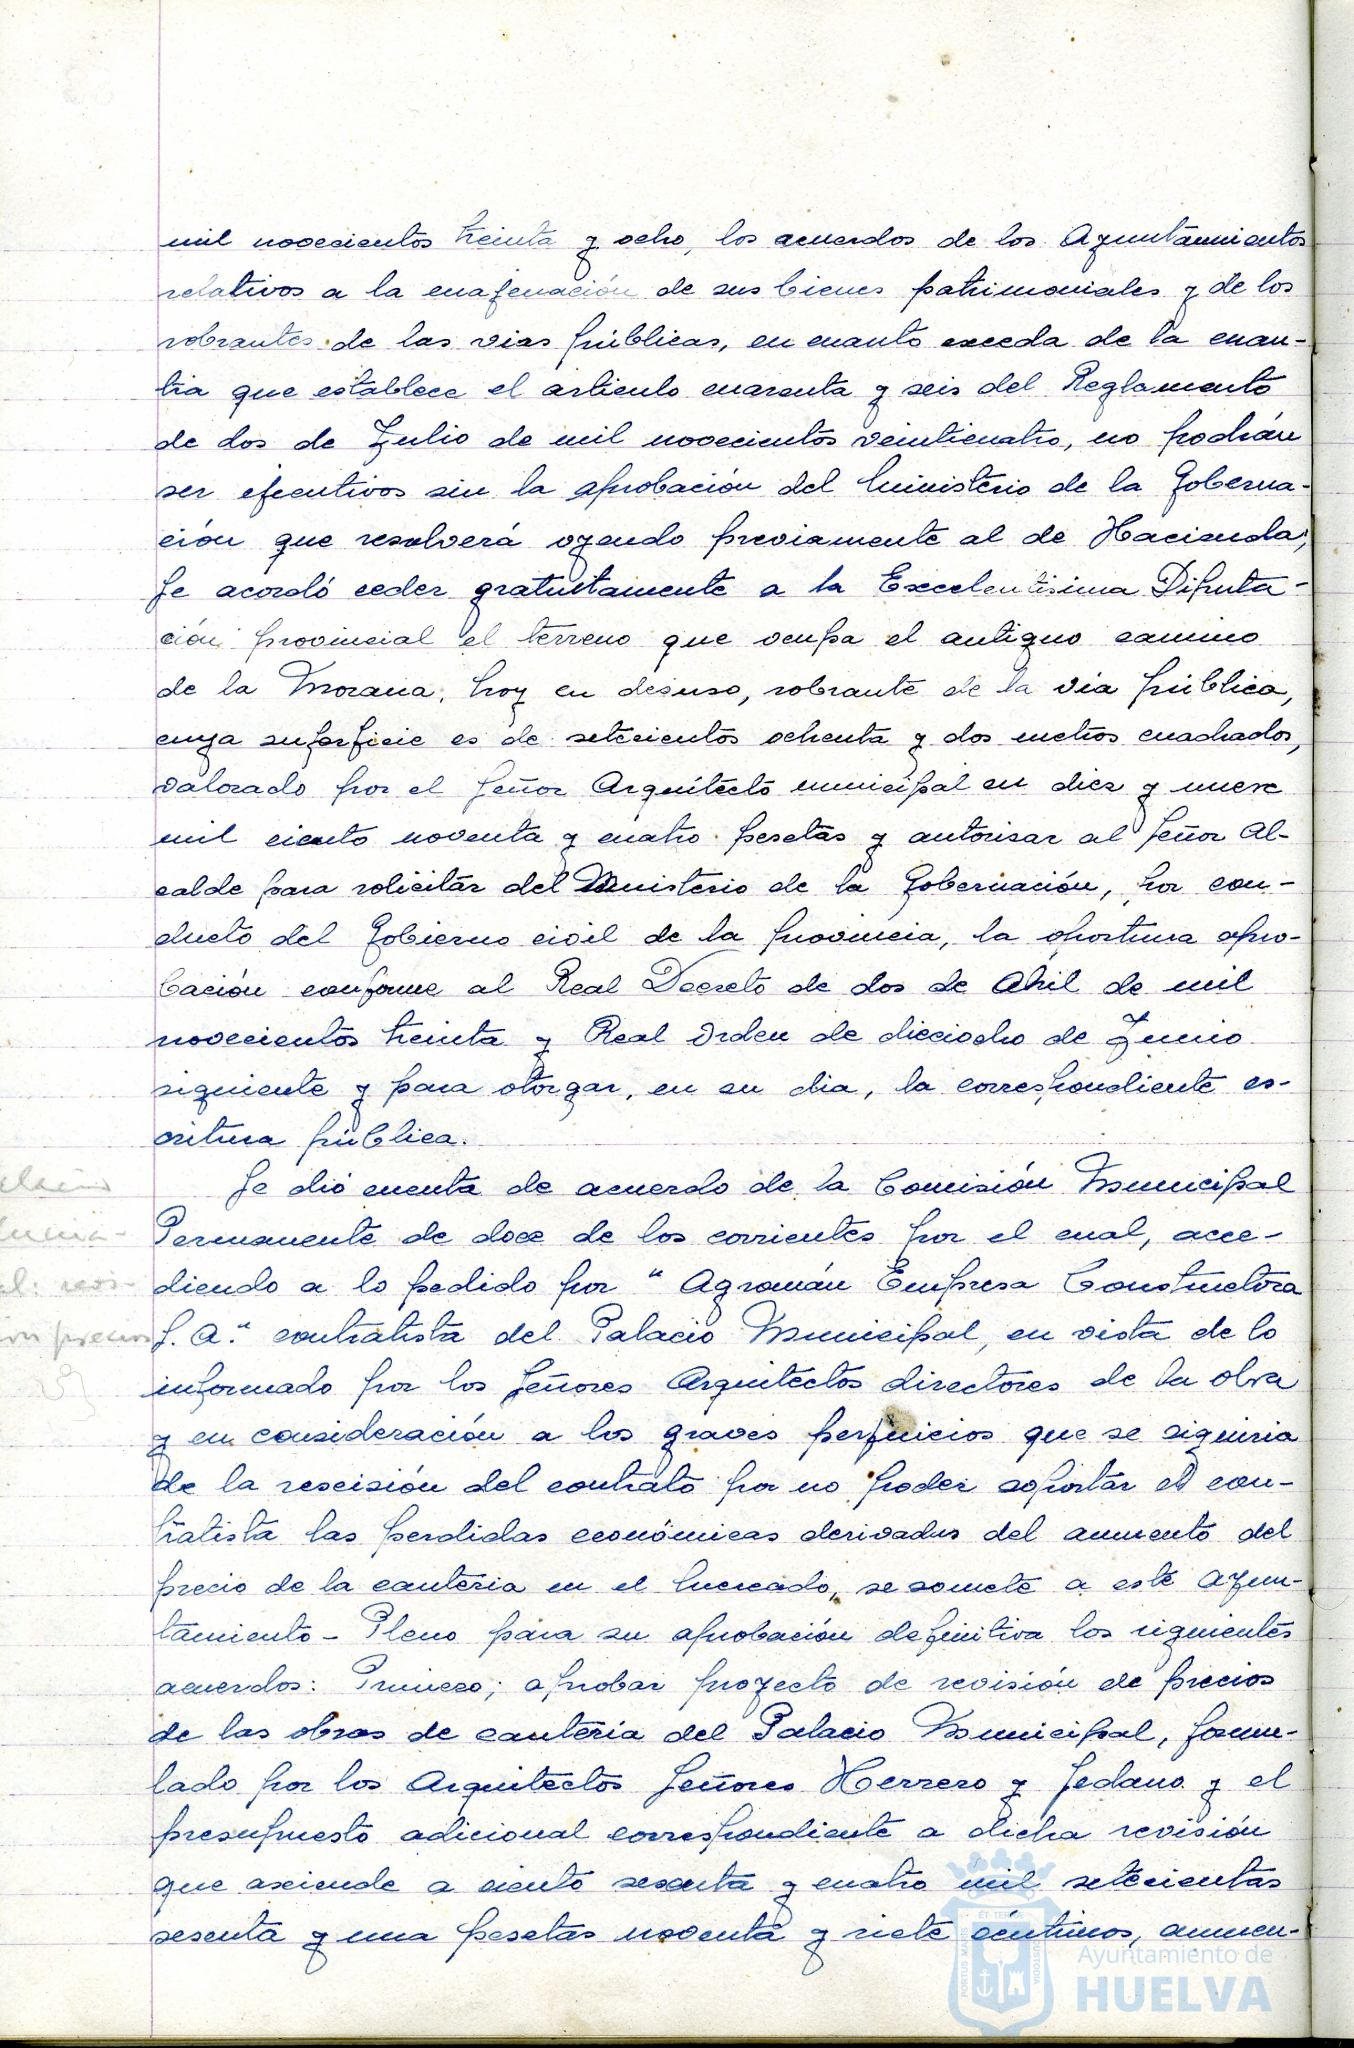 mil novecientos treinta y ocho, los acuerdos de los Ayuntamientos
relativos a la enajenación de sus bienes patrimoniales y de los
sobrantes de las vias públicas, en cuanto exceda de la cuan-
tia que establece el articulo cuarenta y seis del Reglamento
de dos de Julio de mil novecientos veinticuatro, no podrán
ser ejecutivos sin la aprobación del Ministerio de la Goberna-
ción que resolverá oyendo previamente al de Hacienda;
Se acordó ceder gratuitamente a la Excelentisima Diputa-
ción provincial el terreno que ocupa el antiguo camino
de la Morana, hoy en desuso, sobrante de la via pública,
cuya superficie es de setecientos ochenta y dos metros cuadrados,
valorado por el Señor Arquitecto municipal en diez y nueve
mil ciento noventa y cuatro pesetas y autorisar al Señor Al-
calde para solicitar del Ministerio de la Gobernación, por con-
ducto del Gobierno civil de la provincia, la oportuna apro-
bación conforme al Real Decreto de dos de Abril de mil
novecientos treinta y Real Orden de dieciocho de Junio
siguiente y para otorgar, en su dia, la correspondiente es-
critura pública.
Se dió cuenta de acuerdo de la Comisión Municipal
Permanente de doce de los corrientes por el cual, acce-
diendo a lo pedido por "Agromán Empresa Constructora
S. A." contratista del Palacio Municipal, en vista de lo
informado por los Señores Arquitectos directores de la obra
y en consideración a los graves perjuicios que se siguiria
de la rescisión del contrato por no poder soportar el con-
tratista las perdidas económicas derivadas del aumento del
precio de la canteria en el mercado, se somete a este Ayun-
tamiento-Pleno para su aprobación definitiva los siguientes
acuerdos: Primero; aprobar proyecto de revisión de precios
de las obras de canteria del Palacio Municipal, formu-
lado por los Arquitectos Señores Herrero y Sedano y el
presupuesto adicional correspondiente a dicha revisión
que asciende a ciento sesenta y cuatro mil setecientas
sesenta y una pesetas noventa y siete céntimos, aumen-
Ayuntamiento de
HUELVA